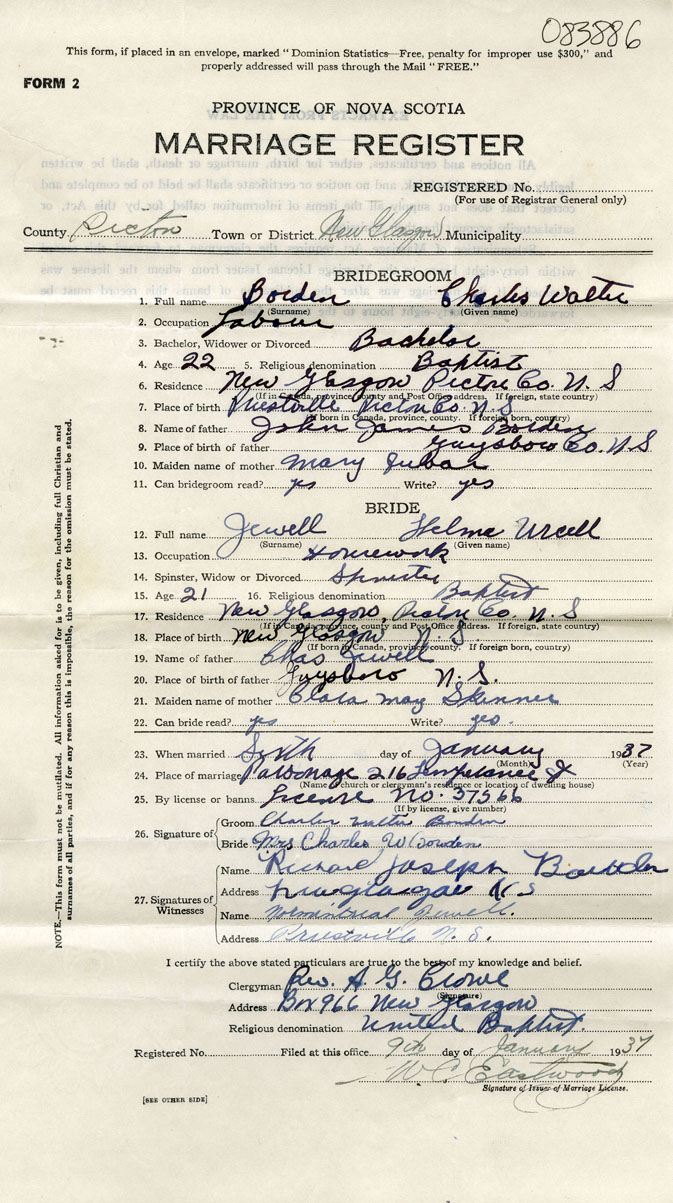 083886
This form, if placed in an envelope, marked "Dominion Statistics—Free, penalty for improper use $300," and
properly addressed will pass through the Mail "FREE."
FORM 2
PROVINCE OF NOVA SCOTIA
MARRIAGE REGISTER
REGISTERED No.
(For use of Registrar General only)
County Pictou Town or District New Glasgow Municipality
BRIDEGROOM
1. Full name Borden Charles Walter
(Surname) (Given name)
2. Occupation Labour
3. Bachelor, Widower or Divorced Bachelor
4. Age 22 5. Religious denomination Baptist
6. Residence New Glasgow Pictou Co. N. S
(If in Canada, province, county and Post Office address. If foreign, state country)
7. Place of birth Priestville Pictou Co. N. S
(If born in Canada, province, county. If foreign born, country)
8. Name of father John James Borden
9. Place of birth of father Guysboro Co. N. S
10. Maiden name of mother Mary
11. Can bridegroom read? yes Write? yes
BRIDE
12. Full name Jewell
(Surname) (Given name)
13. Occupation Housework
14. Spinster, Widow or Divorced Spinster
15. Age 21 16. Religious denomination Baptist
17. Residence New Glasgow, Pictou Co. N. S
(If in Canada, province, county and Post Office address. If foreign, state country)
18. Place of birth New Glasgow N. S.
(If born in Canada, province, county. If foreign born, country)
19. Name of father Chas Jewell
20. Place of birth of father Guysboro N. S.
21. Maiden name of mother Clara May Skinner
22. Can bride read? yes Write? yes.
23. When married Sixth day of January 1937
(Month) (Year)
24. Place of marriage Parsonage 216 Temperance St
(Name of church or clergyman's residence or location of dwelling house)
25. By license or banns License No. 37566
(If by license, give number)
26. Signature of
Groom Charles Walter Borden
Bride Mrs Charles W Borden
27. Signatures of Witnesses
Name Richard Joseph
Address New glasgow N S
Name Jewell.
Address Priestville N. S.
I certify the above stated particulars are true to the best of my knowledge and belief.
Clergyman Rev. A. G. Crowe
(Signature)
Address Box 966 New Glasgow
Religious denomination United Baptist.
Registered No. Filed at this office 9th day of January 1937
W. C. Eastwood
Signature of Issuer of Marriage License.
[SEE OTHER SIDE]
NOTE.—This form must not be mutilated. All information asked for is to be given, including full Christian and
surnames of all parties, and if for any reason this is impossible, the reason for the omission must be stated.